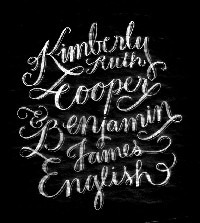 Kimberly
Ruth
Cooper
& Benjamin
James
English